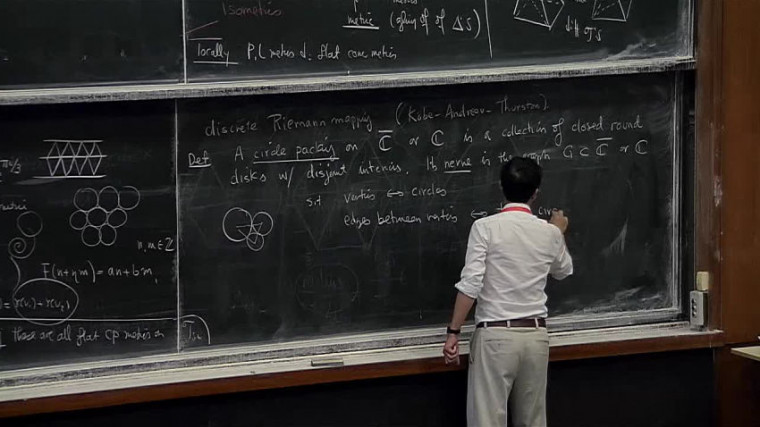 Isometries
metric (gluing of of Δ's)
locally PL metrics ↓ flat cone metrics
diff J's
discrete Riemann mapping (Kobe-Andreev-Thurston).
Def A circle packing on C̅ or ℂ is a collection of closed round
disks w/ disjoint interiors. Its nerve is the graph G ⊂ C̅ or ℂ
s.t vertices ↔ circles
edges between vertices ↔
π/3
metric
n, m ∈ ℤ
F(n+ηm) = an + bm,
= r(v₁) + r(v₂)
these are all flat CP metrics on